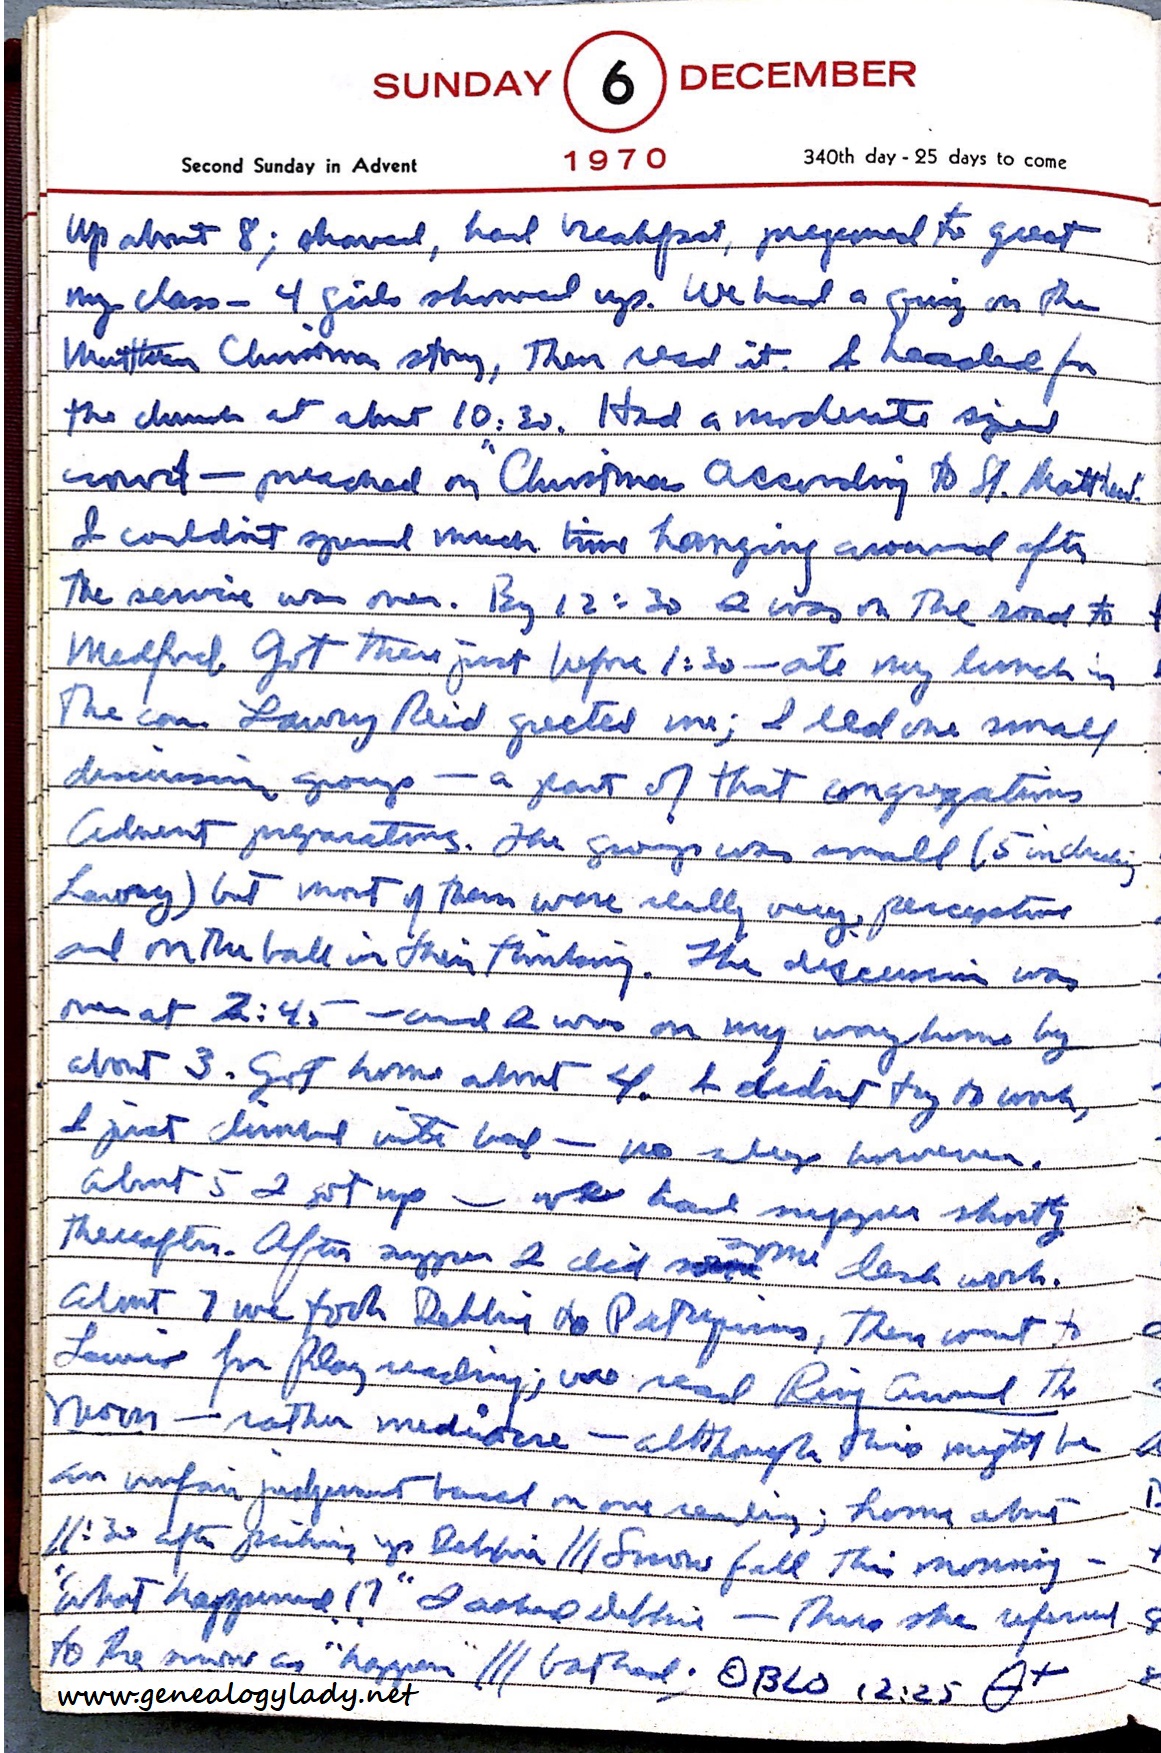 SUNDAY 6 DECEMBER
Second Sunday in Advent 1970 340th day - 25 days to come
Up about 8; shaved, had breakfast, prepared to greet
my class — 4 girls showed up. We had a quiz on the
Matthean Christmas story, then read it. I headed for
the church at about 10:30. Had a moderate sized
crowd — preached on "Christmas According to St. Matthew."
I couldn't spend much time hanging around after
the service was over. By 12:30 I was on the road to
Medford. Got there just before 1:30 — ate my lunch in
the car. Lawry Reid greeted me; I led one small
discussion group — a part of that congregations
Advent preparations. The group was small (5 including
Lawry) but most of them were really very perceptive
and on the ball in their thinking. The discussion was
over at 2:45 — and I was on my way home by
about 3. Got home about 4. I didn't try to work,
I just climbed into bed — no sleep however.
About 5 I got up — we had supper shortly
thereafter. After supper I did some desk work.
About 7 we took Debbie to Pilgrims, then went to
for Play reading; we read Ring Around the
Moon — rather mediocre — although this might be
an unfair judgement based on one reading; home about
11:30 after picking up Debbie /// Snow fell this morning -
"What happened!?" I asked Debbie — thus she referred
to the snow as "happen" /// bathed; ©BLO 12:25
www.genealogylady.net